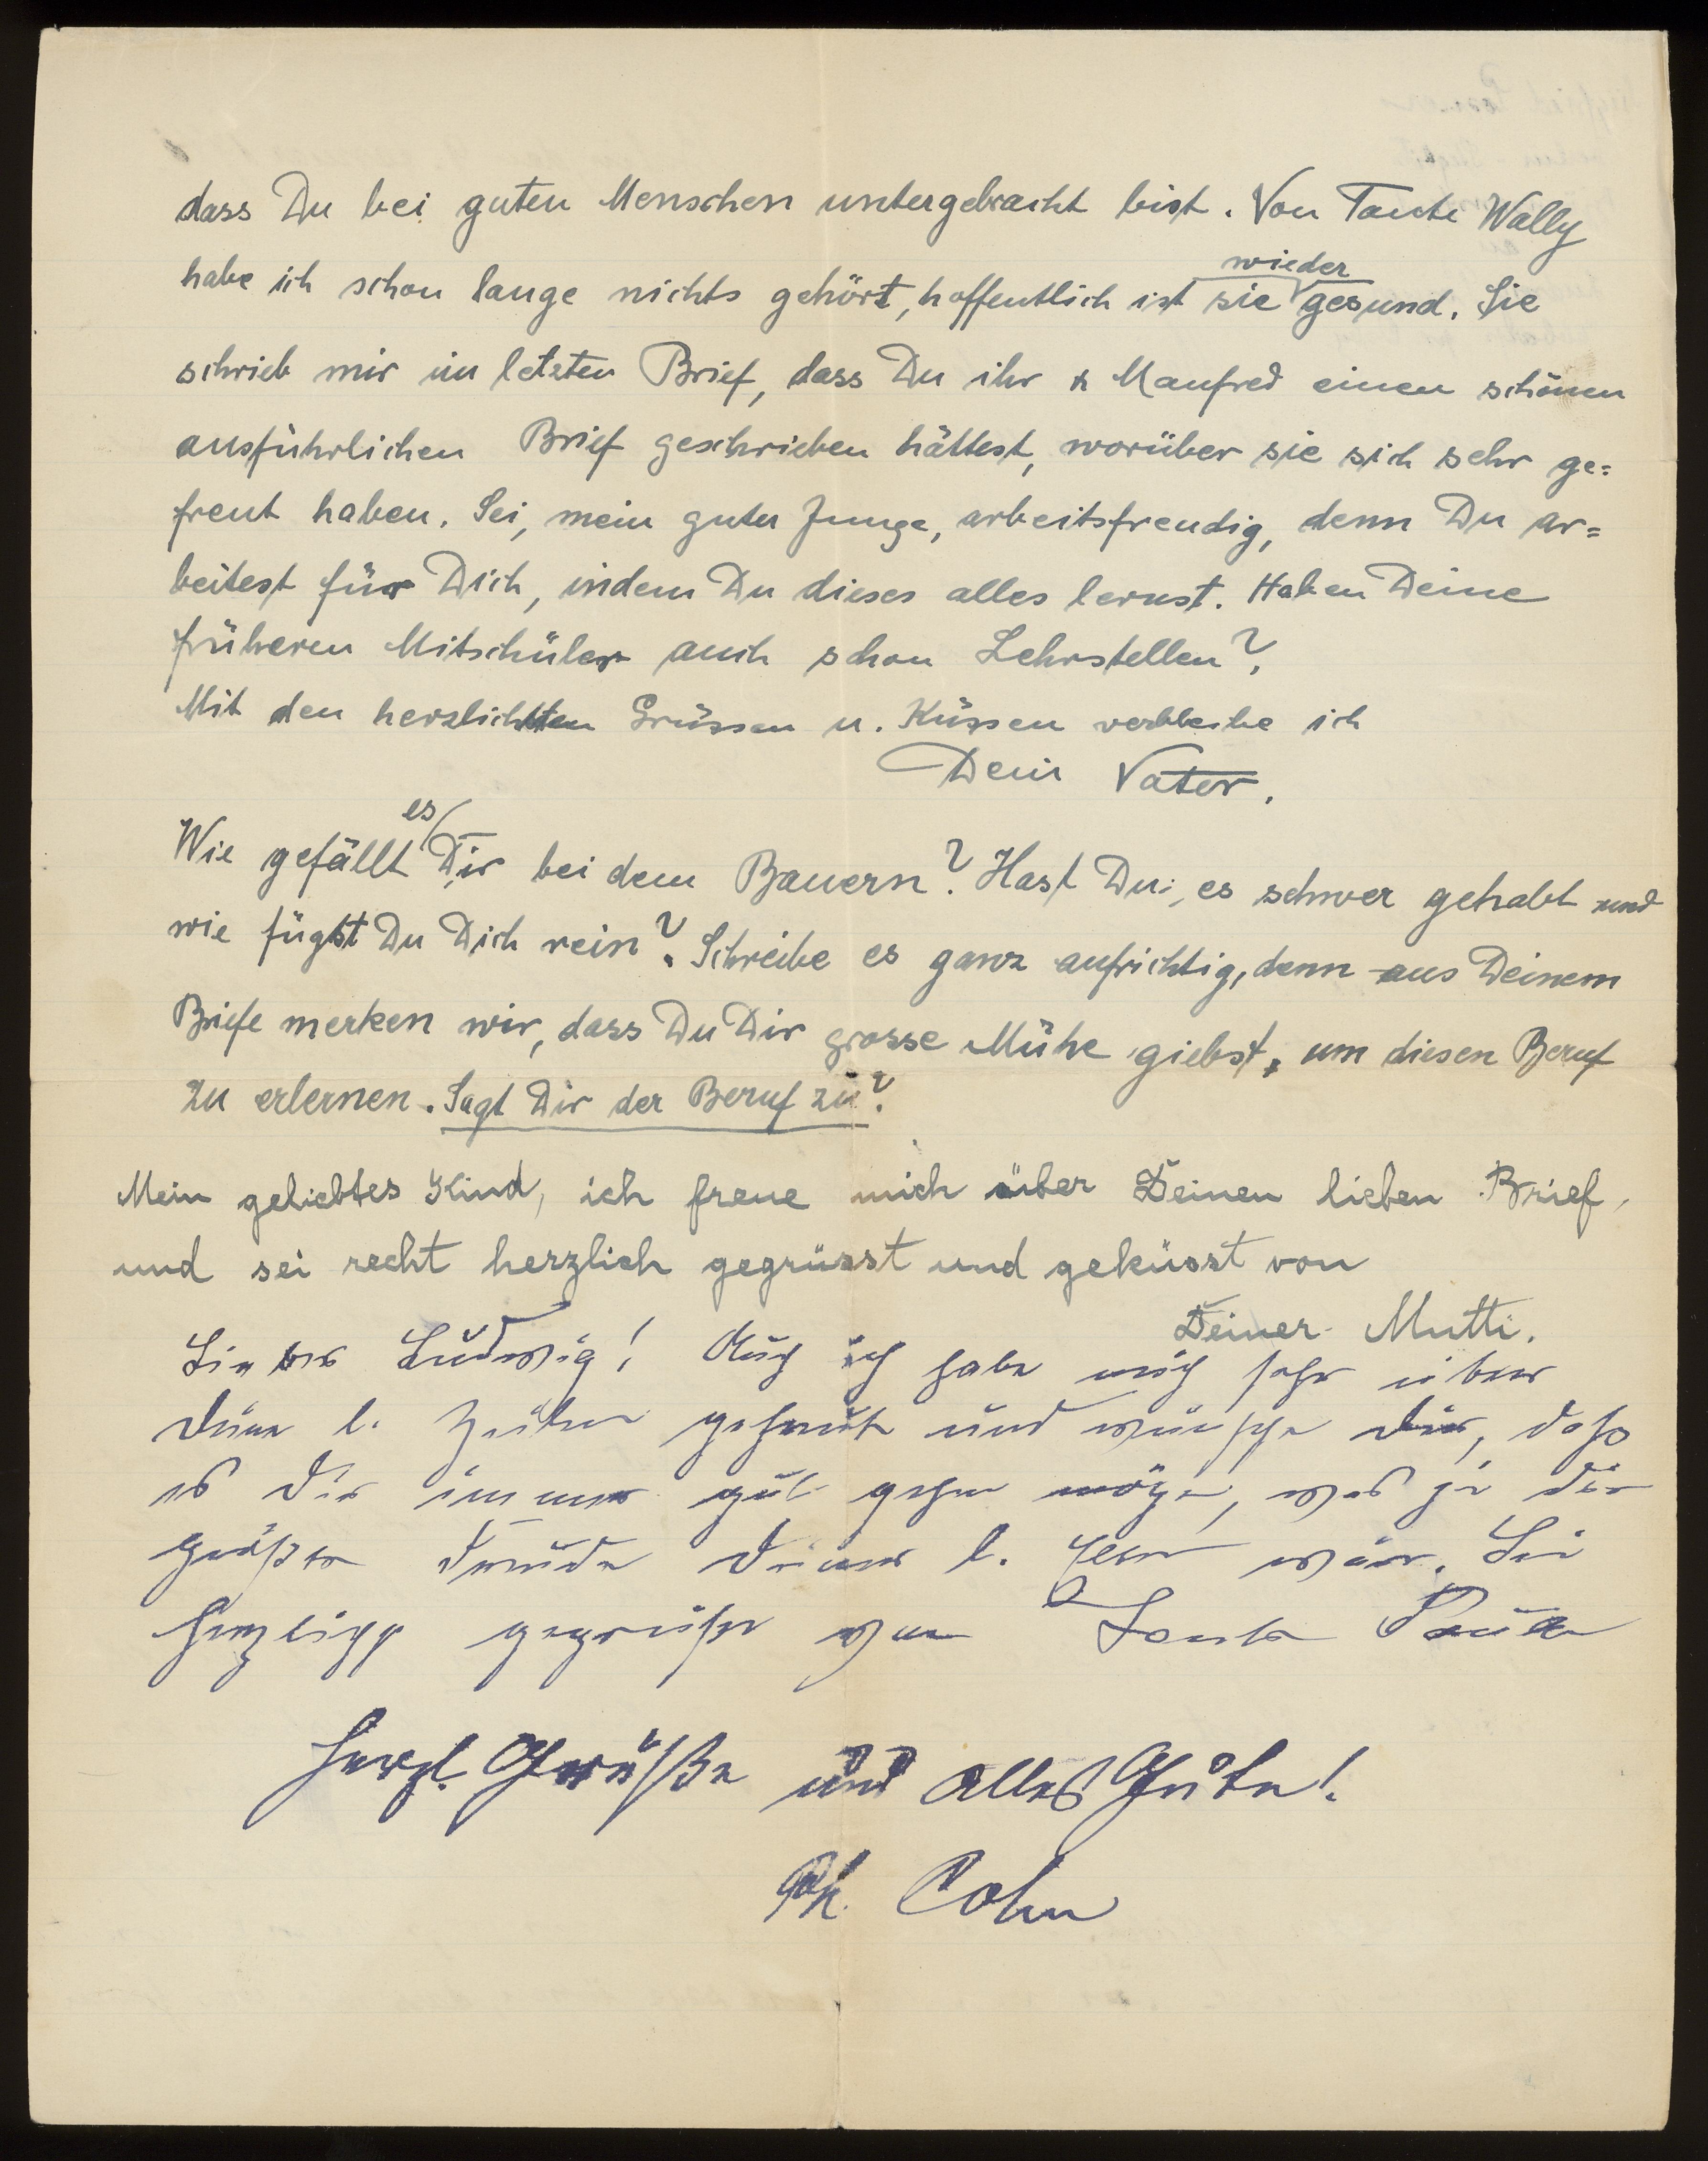 dass Du bei guten Menschen untergebracht bist. Von Tante Wally
habe ich schon lange nichts gehört, hoffentlich ist sie wieder gesund. Sie
schrieb mir im letzten Brief, dass Du ihr u Manfred einen schönen
ausführlichen Brief geschrieben hättest, worüber sie sich sehr ge=
freut haben. Sei, mein guter Junge, arbeitsfreudig, denn Du ar=
beitest für Dich, indem Du dieses alles lernst. Haben Deine
früheren Mitschüler auch schon Lehrstellen?
Mit den herzlichsten Grüssen u. Küssen verbleibe ich
Dein Vater.
Wie gefällt es Dir bei dem Bauern? Hast Du es schwer gehabt und
wie fügst Du Dich rein? Schreibe es ganz aufrichtig, denn aus Deinem
Briefe merken wir, dass Du Dir grosse Mühe giebst, um diesen Beruf
zu erlernen. Sagt Dir der Beruf zu?
Mein geliebtes Kind, ich freue mich über Deinen lieben Brief,
und sei recht herzlich gegrüsst und geküsst von
Deiner Mutti.
Lieber Ludwig! Auch ich habe mich sehr über
Deine l. Zeilen gefreut und wünsche Dir, daß
es Dir immer gut gehen möge, was ja die
größte Freude Deiner l. Eltern wäre. Sei
herzlichst gegrüßt von Tante Paula
Herzl. Grüße und alles Gute!
Ph. Cohn